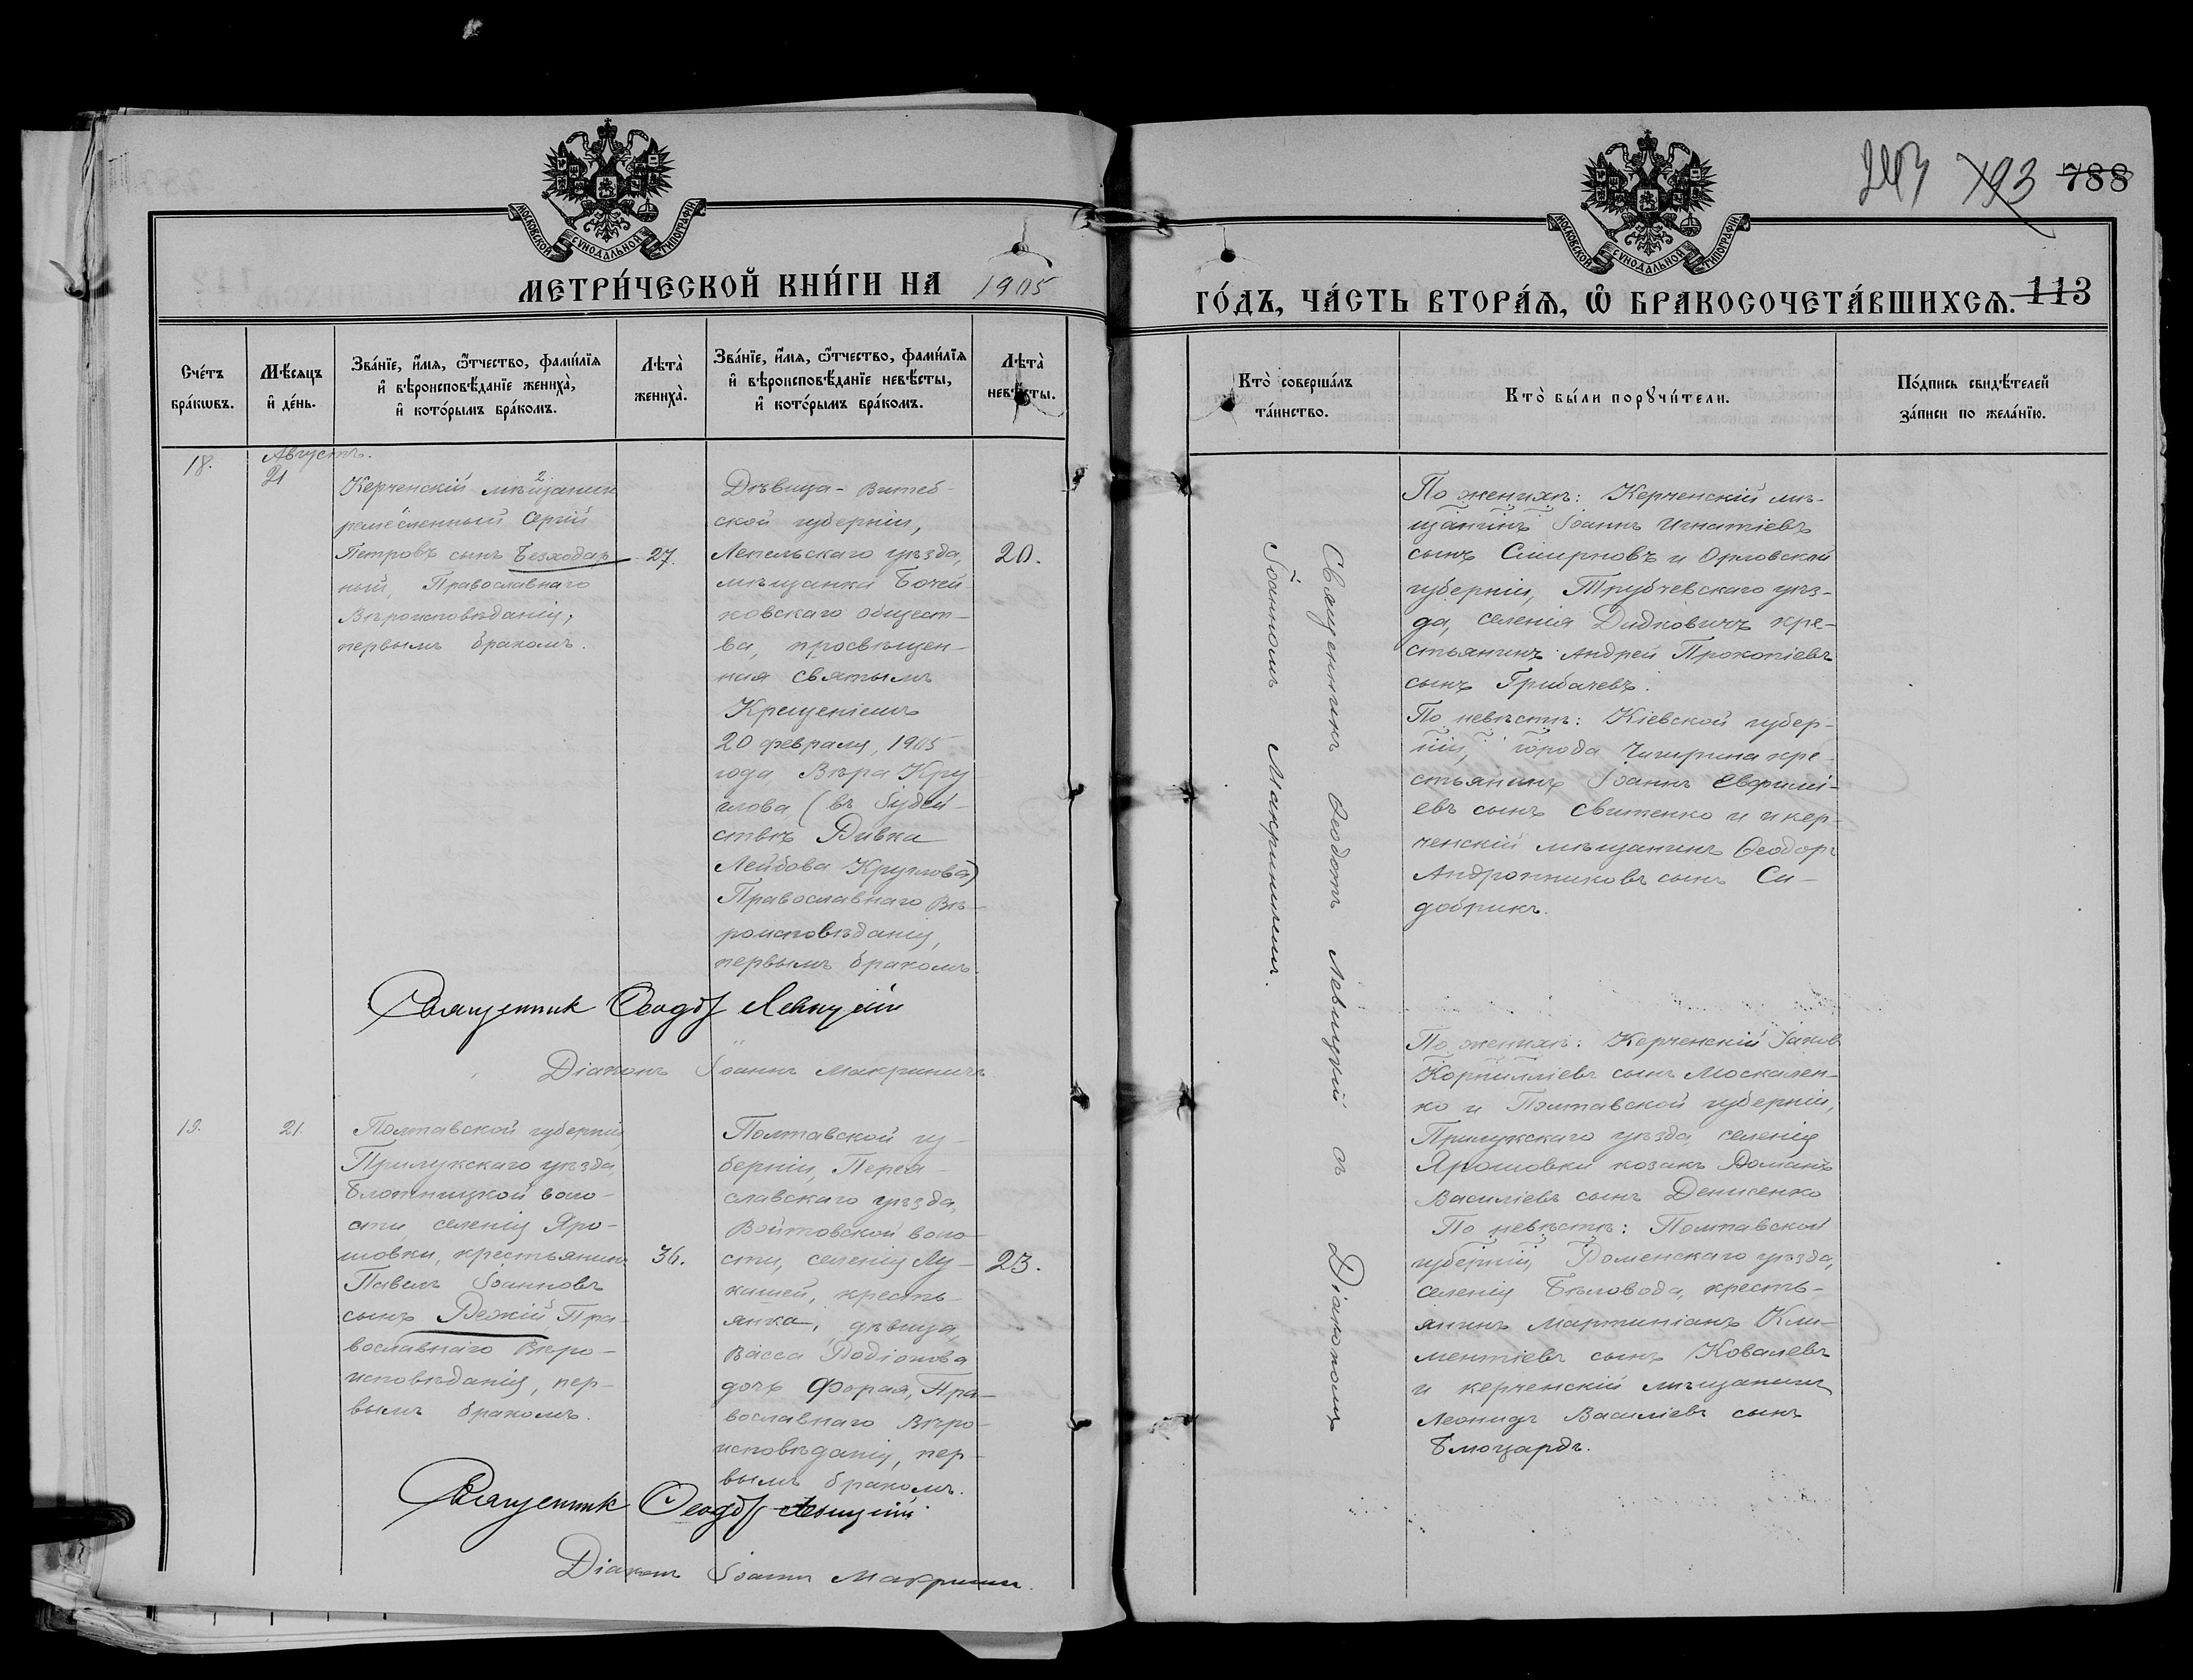 МОСКОВСКОЙ СѴНОДАЛЬНОЙ ТИПОГРАФІИ
МЕТРИ́ЧЕСКОЙ КНИ́ГИ НА 1905
Сче́тъ бра́кωвъ.
Мѣ́сяцъ и҆ де́нь.
Зва́нїе, и҆́мя, ѻ҆́тчество, фами́лїя
и҆ вѣроисповѣ́данїе жениха̀,
и҆ кото́рымъ бра́комъ.
Лѣта̀ жениха̀.
Зва́нїе, и҆́мя, ѻ҆́тчество, фами́лїя
и҆ вѣроисповѣ́данїе невѣ́сты,
и҆ кото́рымъ бра́комъ.
Лѣта̀ невѣ́сты.
18.
Августъ.
21
Керченскій мѣщанинъ 2
ремесленный Сергій
Петровъ сынъ Безходар
ный, Православнаго
Вѣроисповѣданія,
первымъ бракомъ.
27.
Дѣвица - Витеб-
ской губерніи,
Лепельскаго уѣзда,
мѣщанка Бочей
ковскаго общест-
ва, просвѣщен-
ная Святымъ
Крещеніемъ
20 февраля, 1905
года Вѣра Кру
глова (въ Іудей-
ствѣ Ривка
Лейбова Круглова)
Православнаго Вѣ-
роисповѣданія,
первымъ бракомъ.
20.
Священникъ Ѳеодотъ Левицкій
Діаконъ Іоаннъ Макриничъ
19.
21.
Полтавской губерніи,
Прилукскаго уѣзда,
воло-
сти селенія Яро-
шовки, крестьянинъ
Павелъ Іоанновъ
сынъ Режій, Пра-
вославнаго Вѣро-
исповѣданія, пер-
вымъ бракомъ.
36.
Полтавской гу-
берніи, Перея-
славскаго уѣзда,
Войтовской воло-
сти, селенія Лу-
кашей, кресть-
янка, дѣвица,
Васса Родіонова
дочь Форая, Пра-
вославнаго Вѣро-
исповѣданія, пер-
вымъ бракомъ.
23.
Священникъ Ѳеодотъ Левицкій
Діаконъ Іоаннъ Макриничъ.
243 793 788
МОСКОВСКОЙ СѴНОДАЛЬНОЙ ТИПОГРАФІИ
ГО́ДЪ, ЧА́СТЬ ВТОРА́Я, Ѽ БРАКОСОЧЕТА́ВШИХСЯ. 113
Кто̀ соверша́лъ та́инство.
Кто̀ бы́ли порꙋчи́тели.
По́дпись свидѣ́телей
за́писи по жела́нїю.
Священникъ Ѳеодотъ Левицкій съ Діакономъ
Іоанномъ Макриничемъ.
По женихѣ: Керченскій мѣ-
щанинъ Іоаннъ Игнатіевъ
сынъ Смирновъ и Орловской
губерніи, Трубчевскаго уѣз-
да, селенія Дидковичъ кре-
стьянинъ Андрей Прокопіевъ
сынъ Грибачевъ.
По невѣстѣ: Кіевской губер-
ніи, города Чигирина кре-
стьянинъ Іоаннъ Евфимі-
евъ сынъ Свитенко и кер-
ченскій мѣщанинъ Ѳеодоръ
Андронниковъ сынъ Си-
добрикъ.
По женихѣ: Керченскій Іаковъ
Корниліевъ сынъ Москален-
ко и Полтавской губерніи,
Прилукскаго уѣзда, селенія
Ярошовки козакъ Романъ
Василіевъ сынъ Денисенко
По невѣстѣ: Полтавской
губерніи, Роменскаго уѣзда,
селенія Бѣловода, кресть-
янинъ Мартиніанъ Кли-
ментіевъ сынъ Ковалевъ
и керченскій мѣщанинъ
Леонидъ Василіевъ сынъ